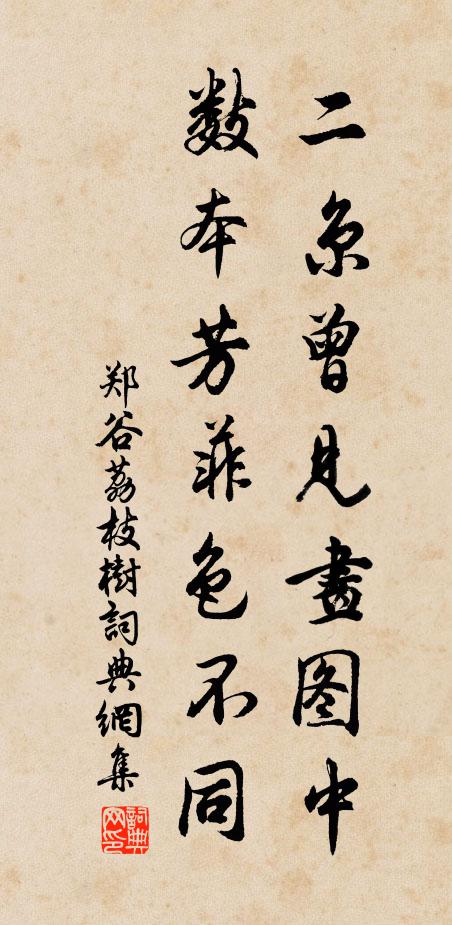 二京曾见畫图中
数本芳菲色不同
郑谷荔枝樹詞典網集
詞典网印